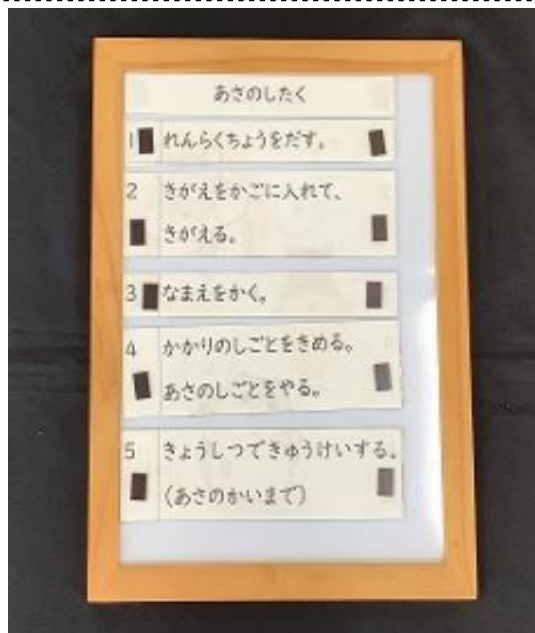 あさのしたく
1 れんらくちょうをだす。
2 きがえをかごに入れて、
きがえる。
3 なまえをかく。
4 かかりのしごとをきめる。
あさのしごとをやる。
5 きょうしつできゅうけいする。
(あさのかいまで)